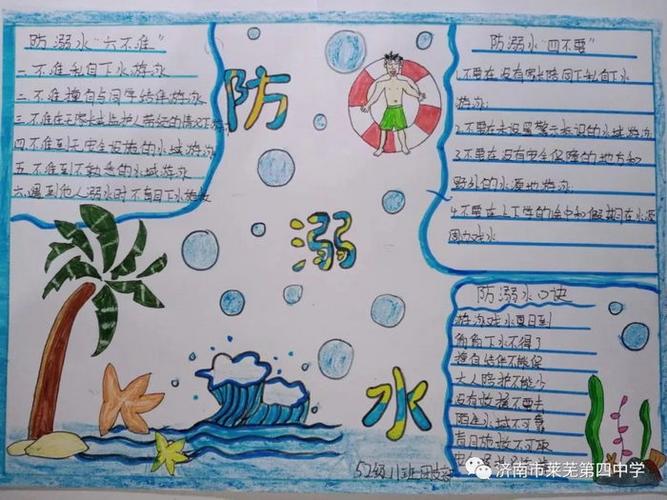 防溺水"六不准"
一.不准私自下水游泳
二.不准擅自与同学结伴游泳
三.不准在无家长或监护人带领的情况下游泳
四.不准到无安全设施的水域游泳
五.不准到不熟悉的水域游泳
六.遇到他人溺水时不盲目下水施救
防
溺
水
防溺水"四不要"
1.不要在没有家长陪同下私自下水
游泳;
2.不要在未设置警示标识的水域游泳
3.不要在没有安全保障的地方和
野外的水源地游泳
4.不要在上下学的途中和假期在水源
周边戏水
防溺水口诀
游泳戏水夏日到
私自下水不得了
擅自结伴不能保
大人陪护不能少
没有救援不要去
陌生水域不可靠
盲目施救不可取
52级11班
济南市莱芜第四中学